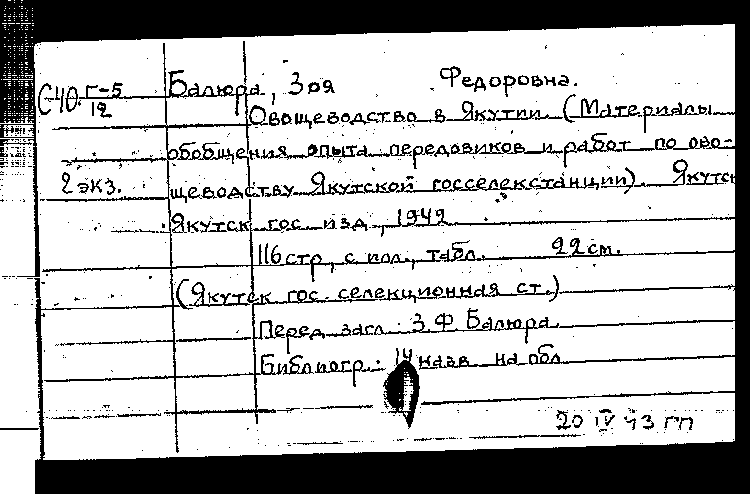 С40. Г-5/12
Балюра, Зоя Федоровна.
Овощеводство в Якутии (Материалы
обобщения опыта передовиков и работ по ово-
2 экз. щеводству Якутской госселекстанции). Якутск
Якутск гос изд, 1942
116 стр, с илл., табл. 22 см.
(Якутск гос. селекционная ст.)
Перед загл: З. Ф. Балюра.
Библиогр.: 14 назв на обл
20 IV 43 ГП